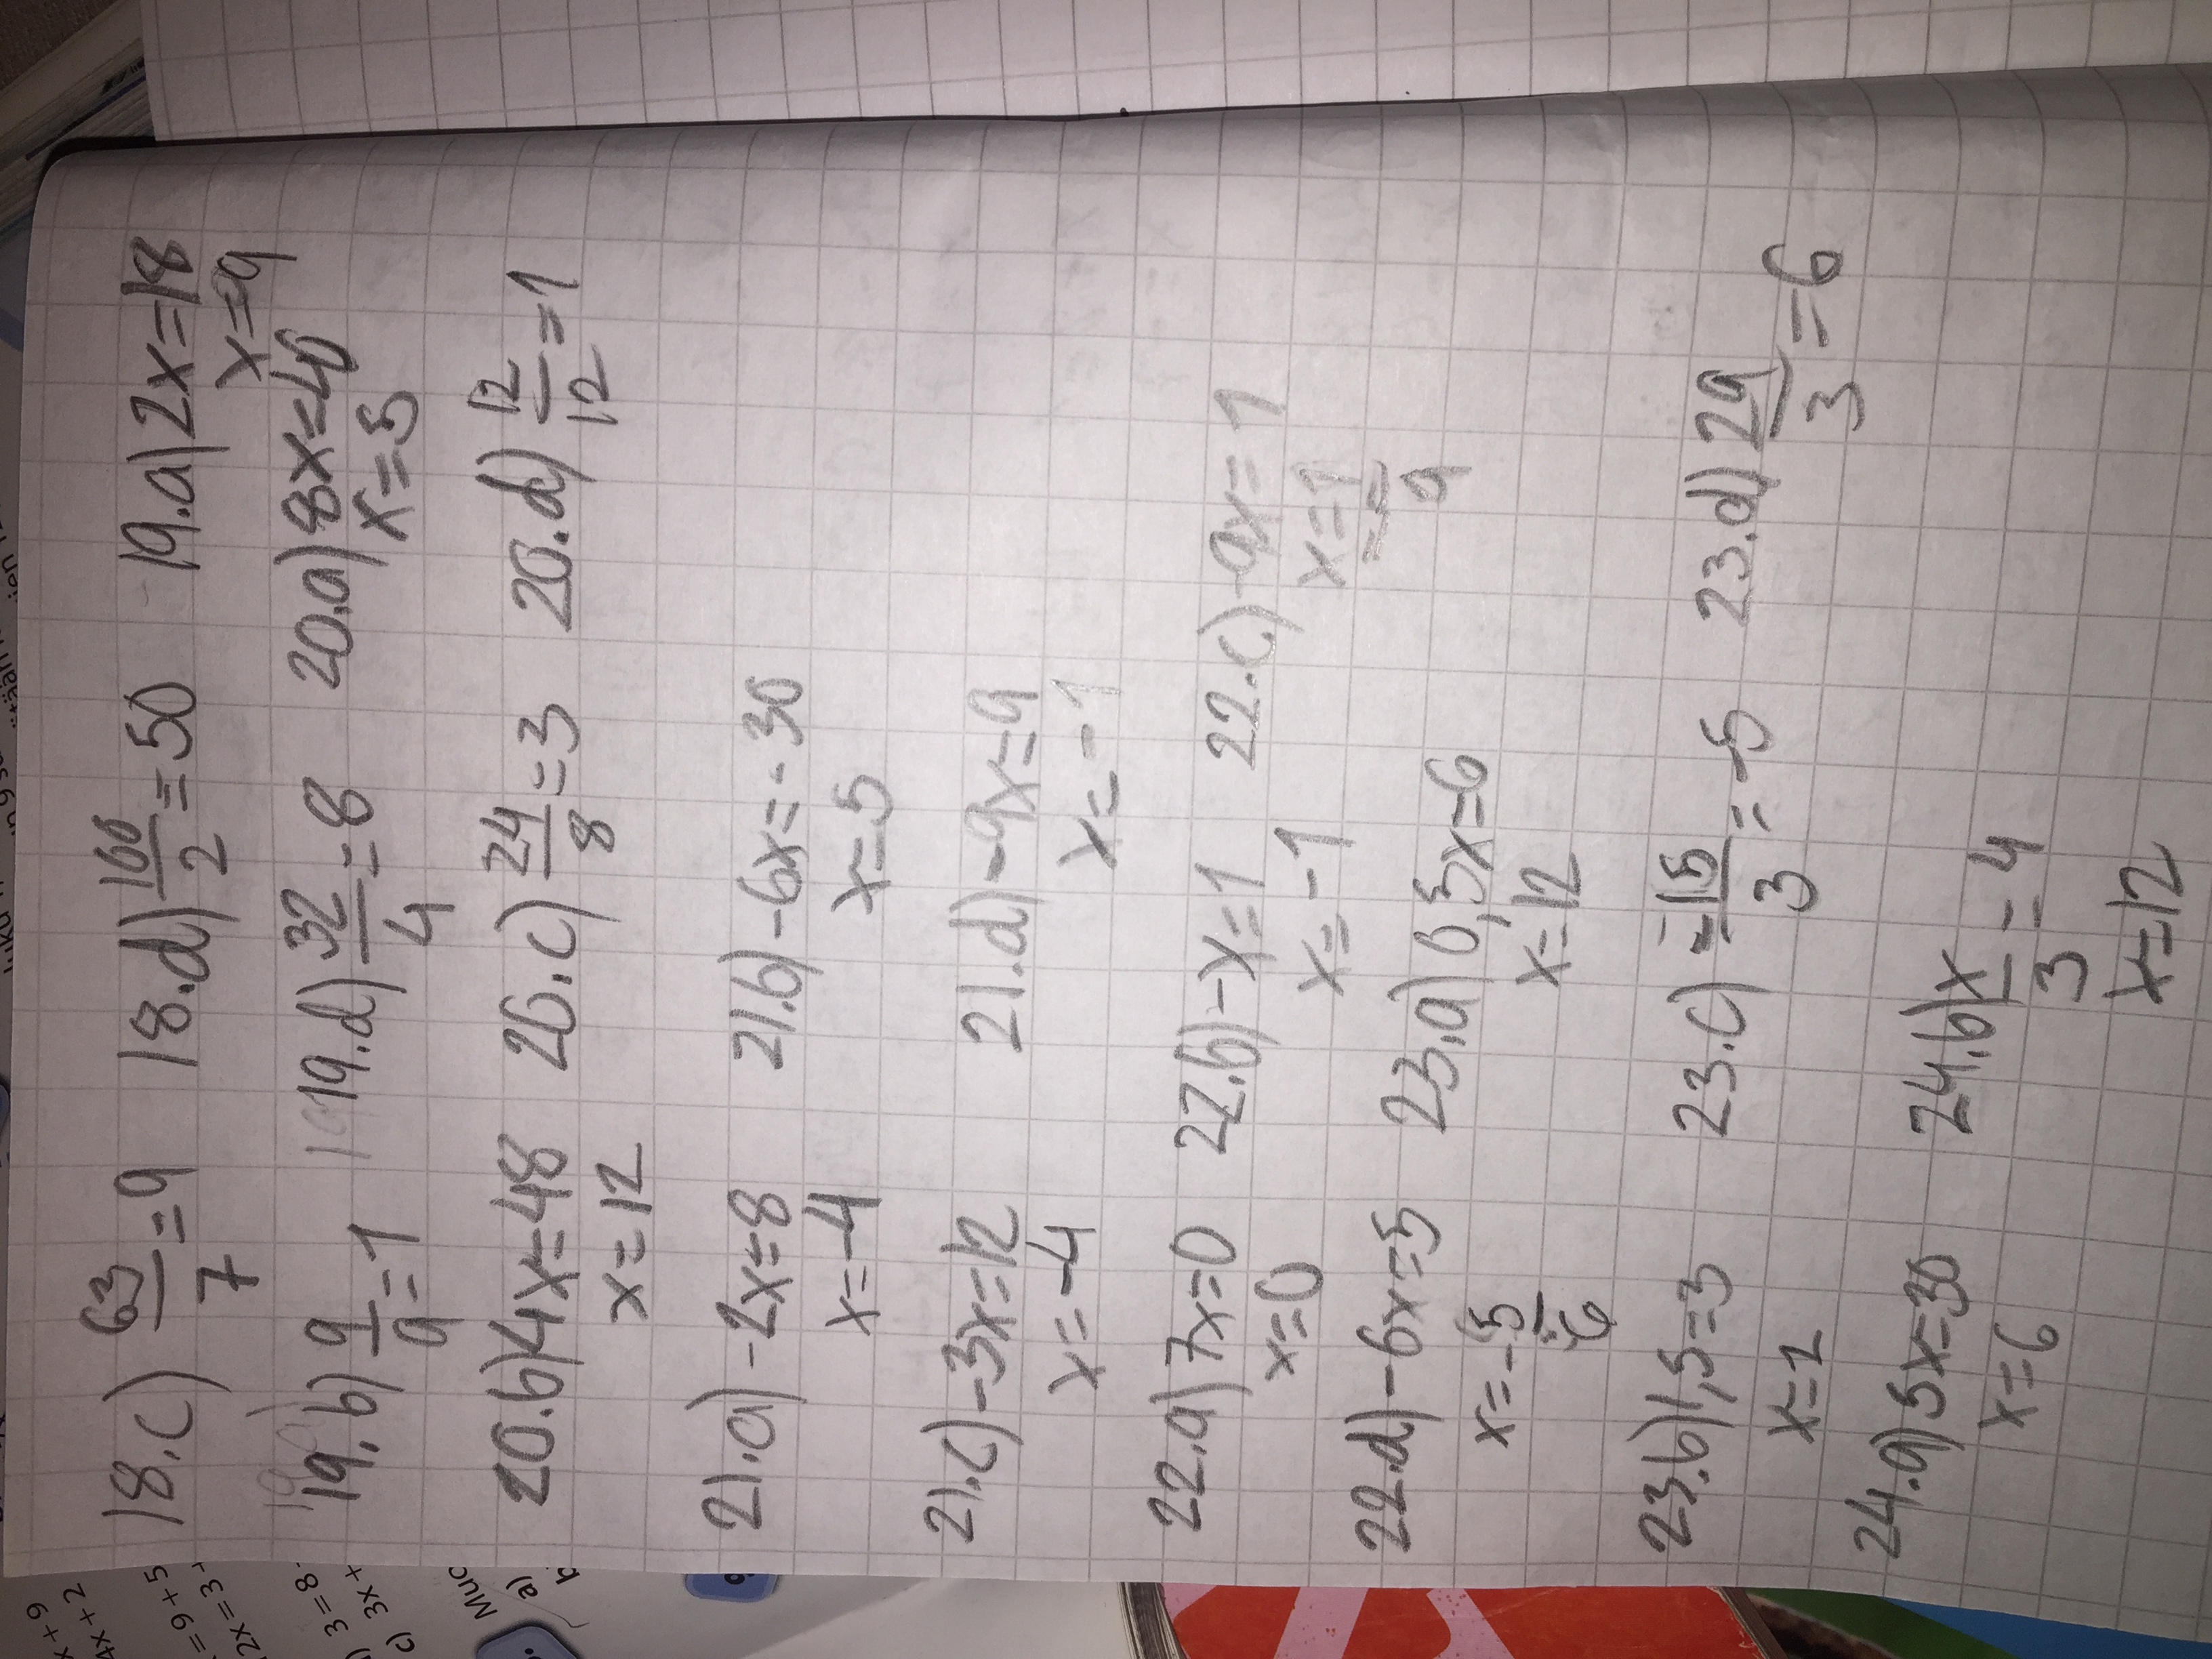 18.c) 63/7 = 9 18.d) 100/2 = 50 19.a) 2x=18
x=9
19.b) 9/9 = 1 19.d) 32/4 = 8 20.a) 8x=40
x=5
20.b) 4x=48 20.c) 24/8 = 3 20.d) 12/12 = 1
x=12
21.a) -2x=8 21.b) -6x=-30
x=-4 x=5
21.c) -3x=12 21.d) -9x=9
x=-4 x=-1
22.a) 7x=0 22.b) -x=1 22.c) -9x=1
x=0 x=-1 x=-1/9
22.d) -6x=5 23.a) 0,5x=6
x=-5/6 x=12
23.b) 1,5=3 23.c) -15/3 = -5 23.d) 29/3 = 6
x=1
24.a) 5x=30 24.b) x/3 = 4
x=6 x=12
x+9
4x+2
=9+5
2x=3+
3=8-
c) 3x+
Muo
a)